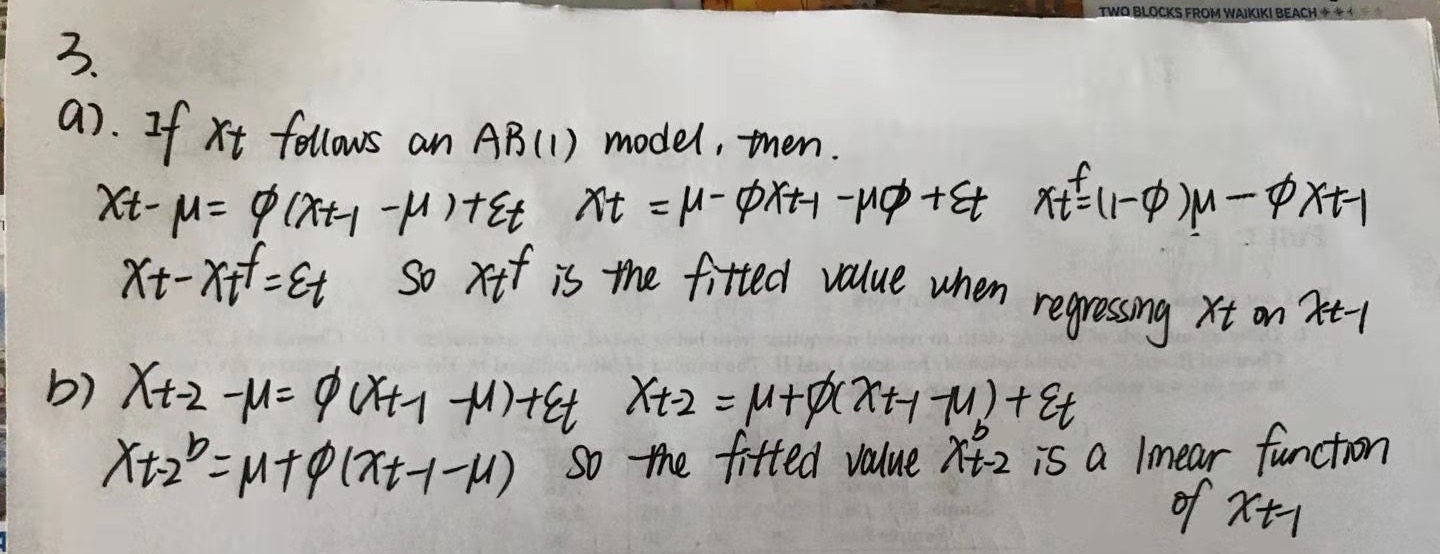 TWO BLOCKS FROM WAIKIKI BEACH
3.
a). If xt follows an AB(1) model, then.
xt-μ= φ(xt-1 -μ)+εt xt =μ-φxt-1 -μφ+εt xt^f=(1-φ)μ-φxt-1
xt-xt^f=εt so xt^f is the fitted value when regressing xt on xt-1
b) xt-2 -μ= φ(xt-1 -μ)+εt xt-2 =μ+φ(xt-1-μ)+εt
xt-2^b=μ+φ(xt-1-μ) so the fitted value x^bt-2 is a linear function
of xt-1